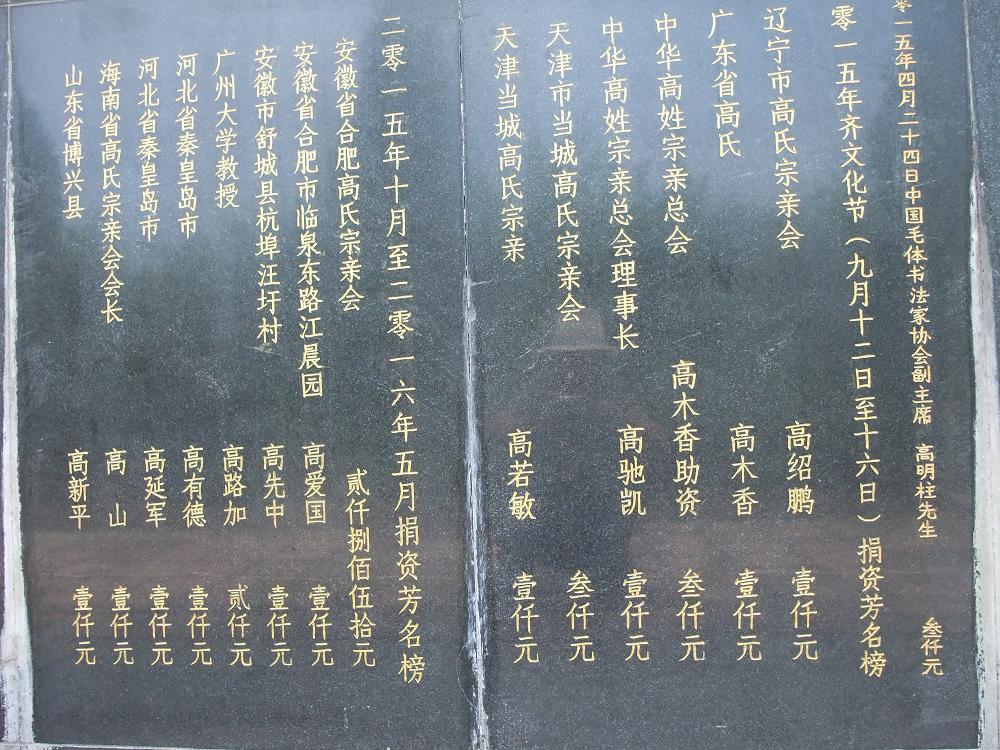 零一五年四月二十四日中国毛体书法家协会副主席 高明柱先生 叁仟元
零一五年齐文化节（九月十二日至十六日）捐资芳名榜
辽宁市高氏宗亲会 高绍鹏 壹仟元
广东省高氏 高木香 壹仟元
中华高姓宗亲总会 高木香助资 叁仟元
中华高姓宗亲总会理事长 高驰凯 壹仟元
天津市当城高氏宗亲会 叁仟元
天津当城高氏宗亲 高若敏 壹仟元
二零一五年十月至二零一六年五月捐资芳名榜
安徽省合肥高氏宗亲会 贰仟捌佰伍拾元
安徽省合肥市临泉东路江晨园 高爱国 壹仟元
安徽市舒城县杭埠汪圩村 高先中 壹仟元
广州大学教授 高路加 贰仟元
河北省秦皇岛市 高有德 壹仟元
河北省秦皇岛市 高延军 壹仟元
海南省高氏宗亲会会长 高山 壹仟元
山东省博兴县 高新平 壹仟元